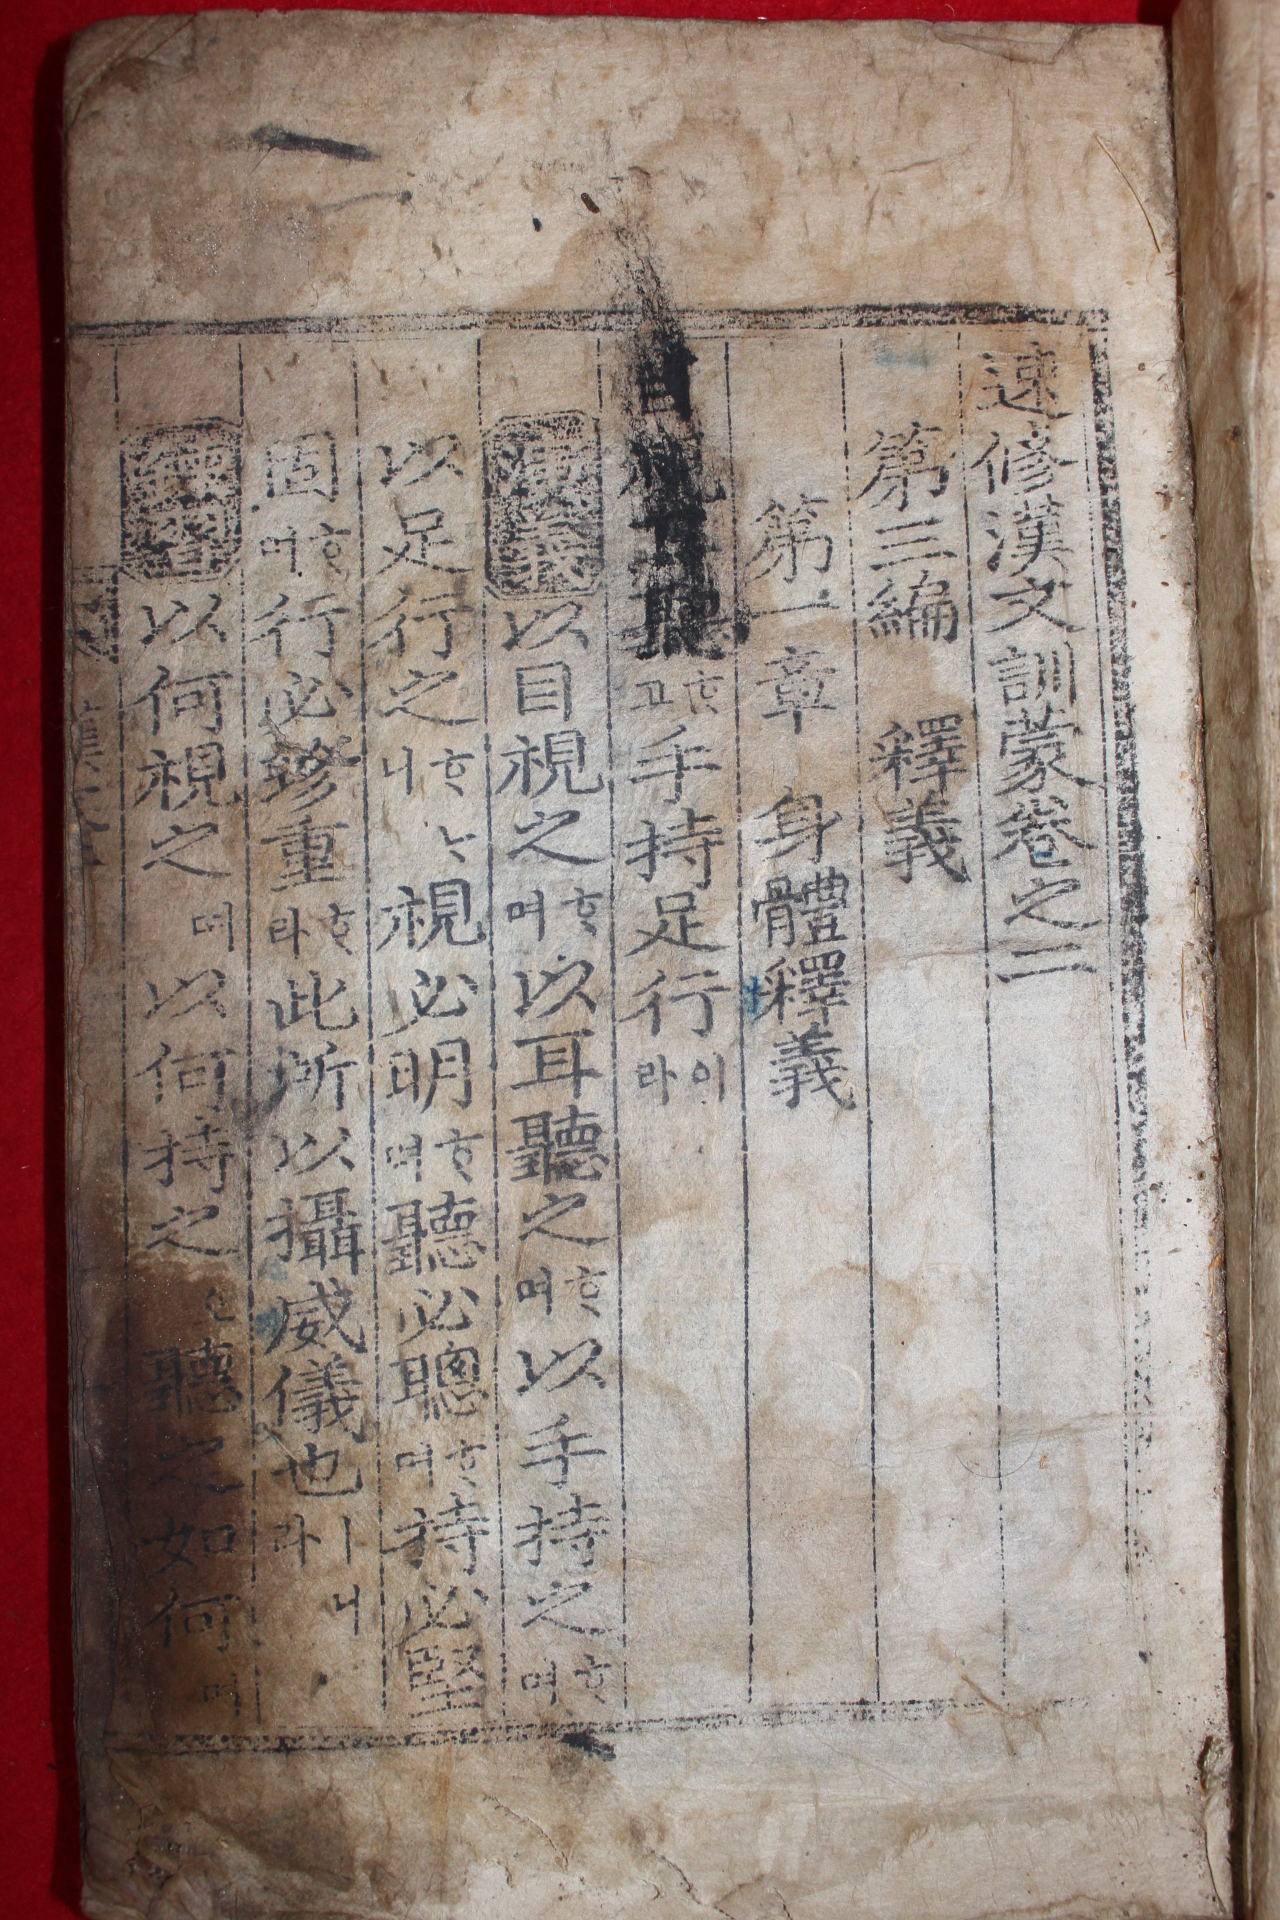 速修漢文訓蒙卷之二
第三編 釋義
第一章 身體釋義
目視耳聽ᄒᆞ고手持足行이라
演義以目視之ᄒᆞ며以耳聽之ᄒᆞ며以手持之ᄒᆞ며
以足行之ᄒᆞᄂᆞ니視必明ᄒᆞ며聽必聰ᄒᆞ며持必堅
固ᄒᆞ며行必珍重ᄒᆞ라此所以攝威儀也ㅣ니라
練習以何視之며以何持之오聽之如何며